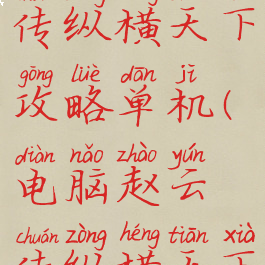 传纵横天下
gōng lüè dān jī
攻略单机(
diàn nǎo zhào yún
电脑赵云
chuán zòng héng tiān xià
传纵横天下